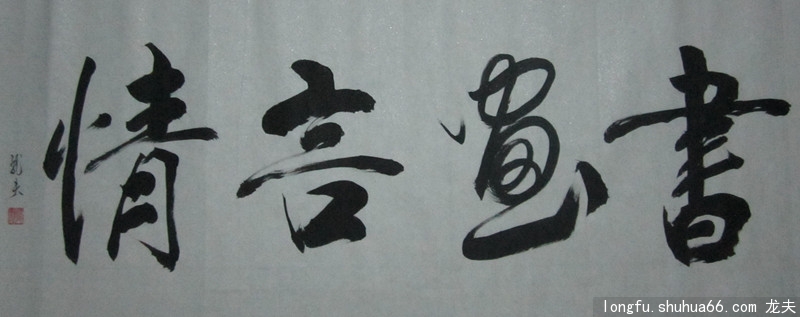 書畫言情
龍夫
longfu.shuhua66.com 龙夫